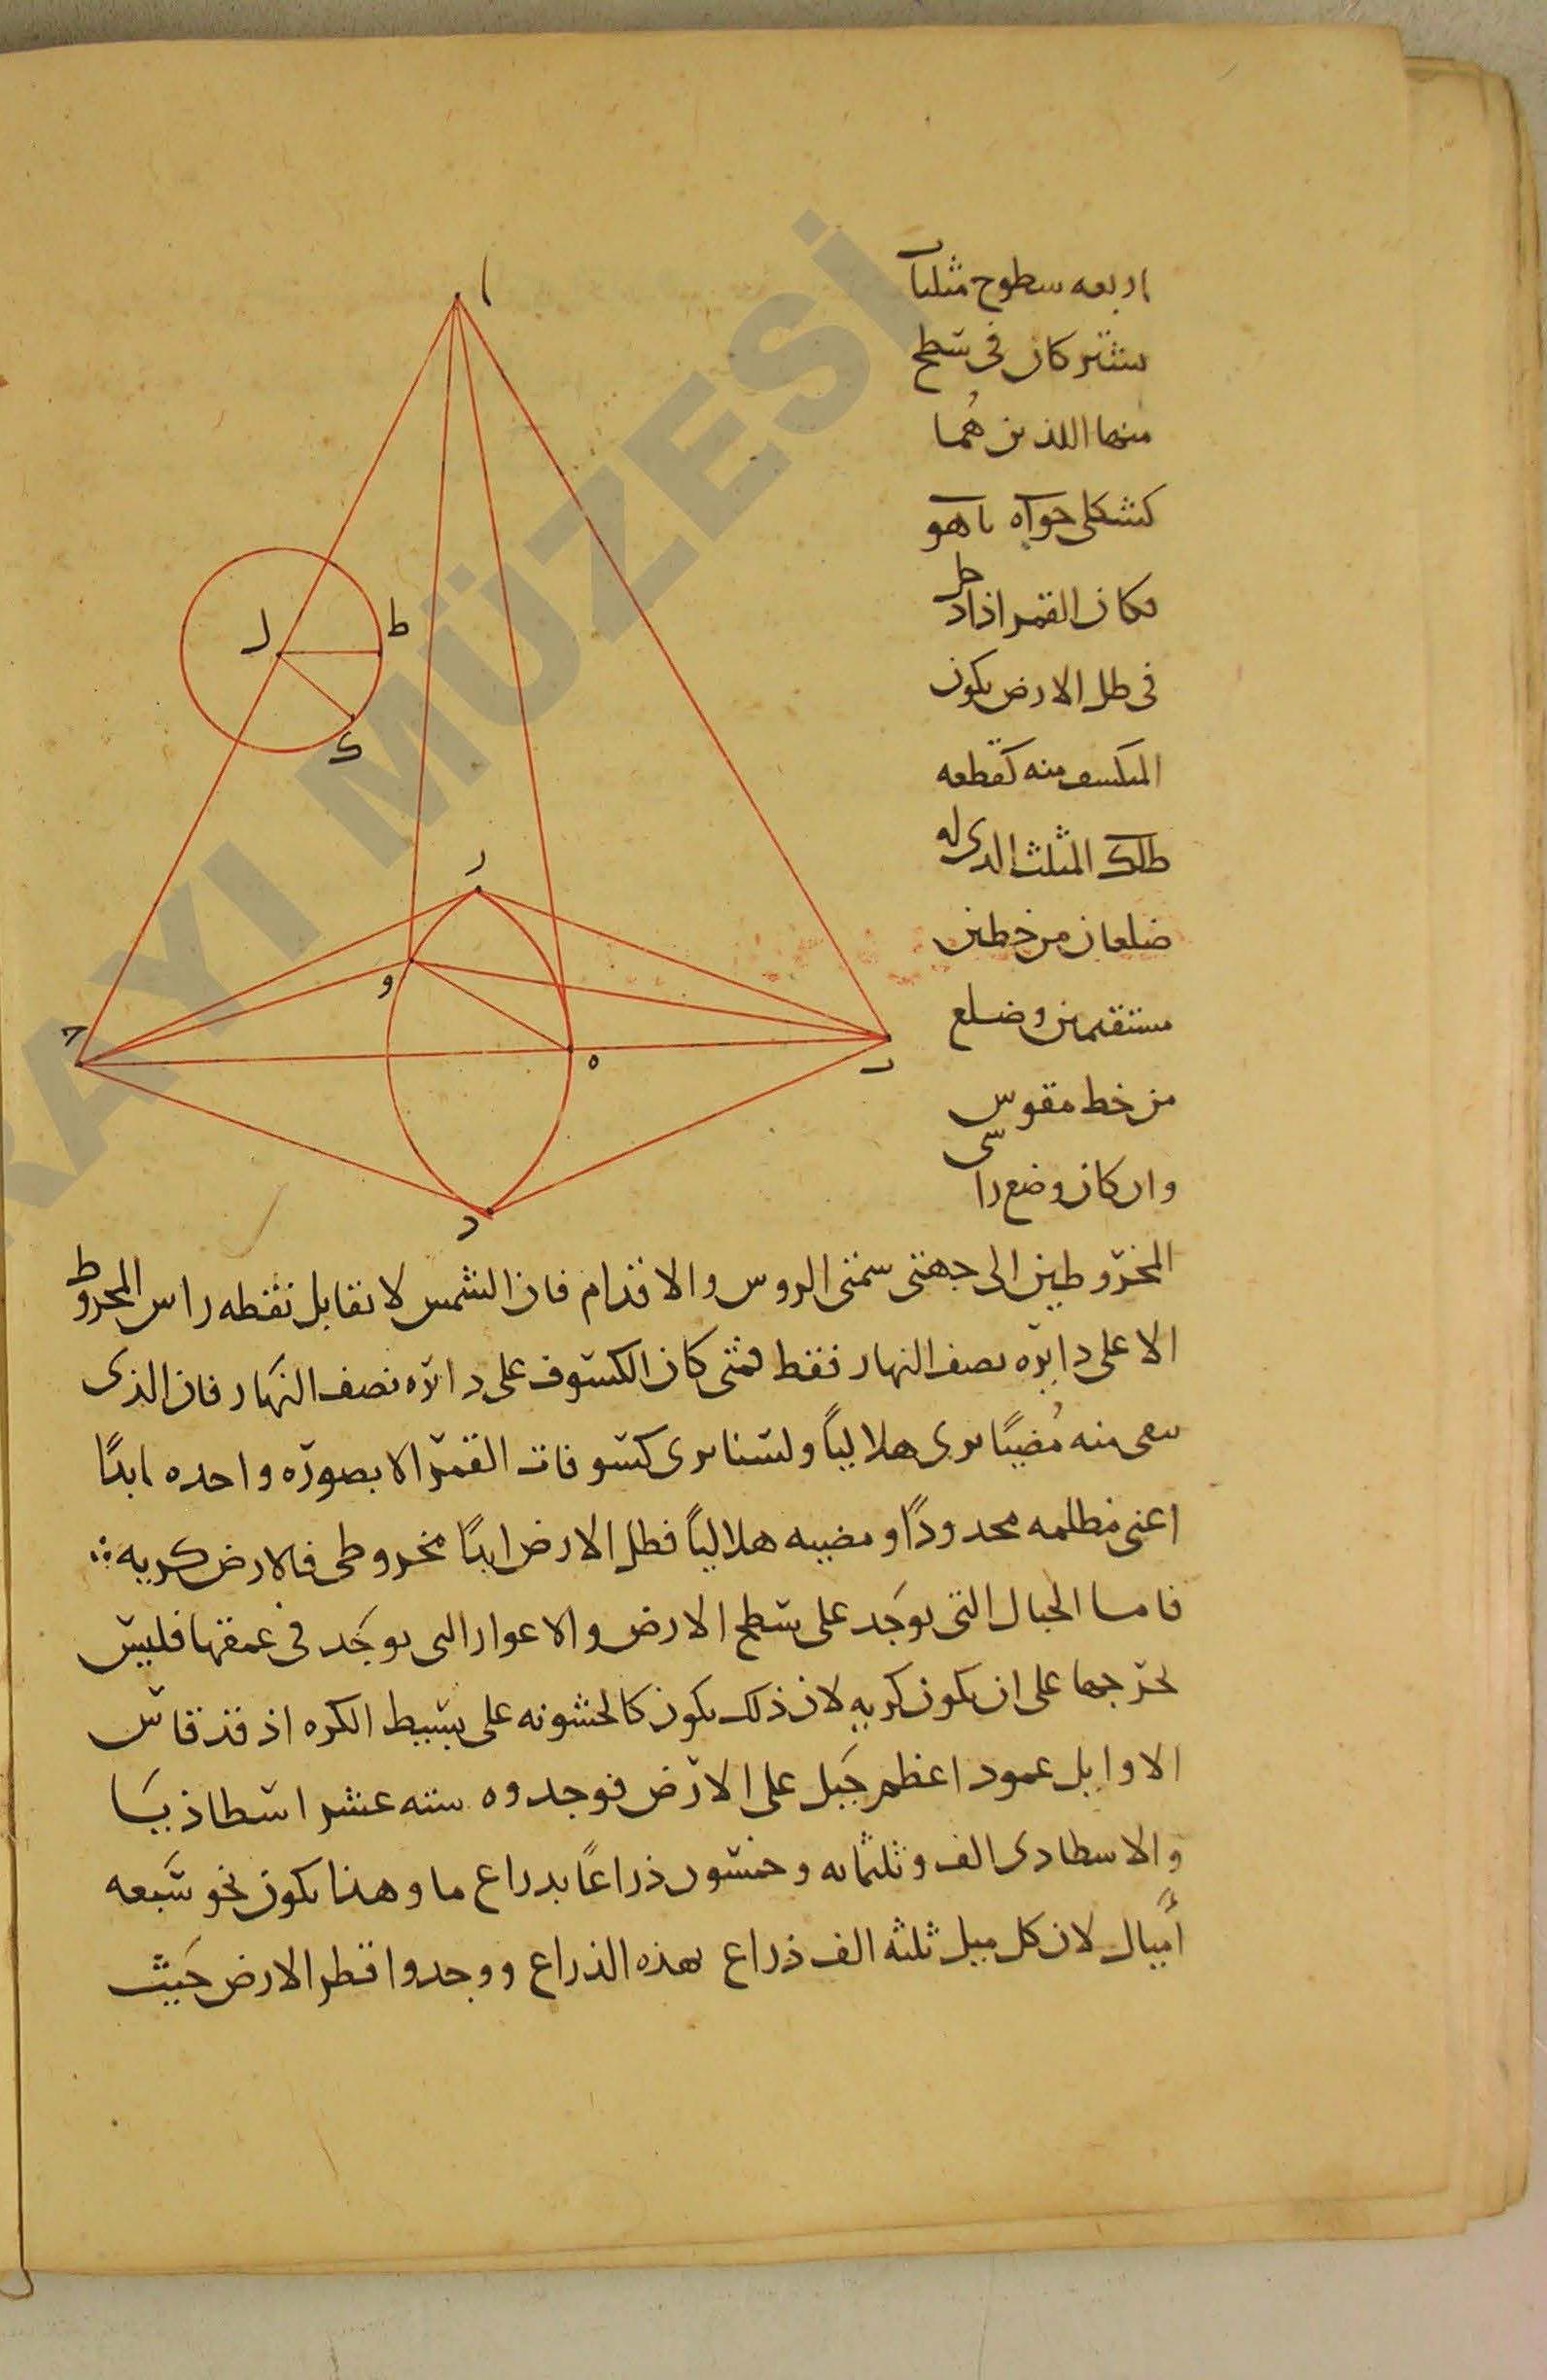 اربعه سطوح مثلثات
يشتركان فى سطح
منها اللذين هُما
كشكلى حواه ناهو
فكان القمر اذا دخل
فى ظل الارض يكون
المنكسف منه كقطعه
طلك المثلث الدى له
ضلعان من خطين
مستقيمين وضلع
من خط مقوس
وان كان وضع راسى
المخروطين الى جهتى سمتى الروس والاقدام فان الشمس لا تقابل نقطه راس المخروط
الا على دايره نصف النهار فقط فمتى كان الكسوف على دائره نصف النهار فان الذى
يبقى منه مُضيًا يرى هلالياً ولسنا نرى كسوفات القمر الا بصوره واحده ابدًا
اعنى مظلمه محدودًا ومضيه هلالياً فظل الارض ابدًا مخروطى فالارض كريه
فاما الجبال التى توجد على سطح الارض والاغوار التى توجد فى عمقها فليس
تخرجها على ان تكون كريه لان ذلك يكون كالخشونه على بسيط الكره اذ قد قاس
الاوايل عمود اعظم جبل على الارض فوجدوه سته عشر اسطاذيا
والاسطادى الف وثلثمايه وخمسون ذراعًا بدراع ما وهذا يكون نحو سبعه
أميال لان كل ميل ثلثه الف ذراع بهذه الذراع ووجدوا قطر الارض حيث
ا
ط
ل
ك
ر
و
ح
ه
ب
د
RAYI MÜZESİ